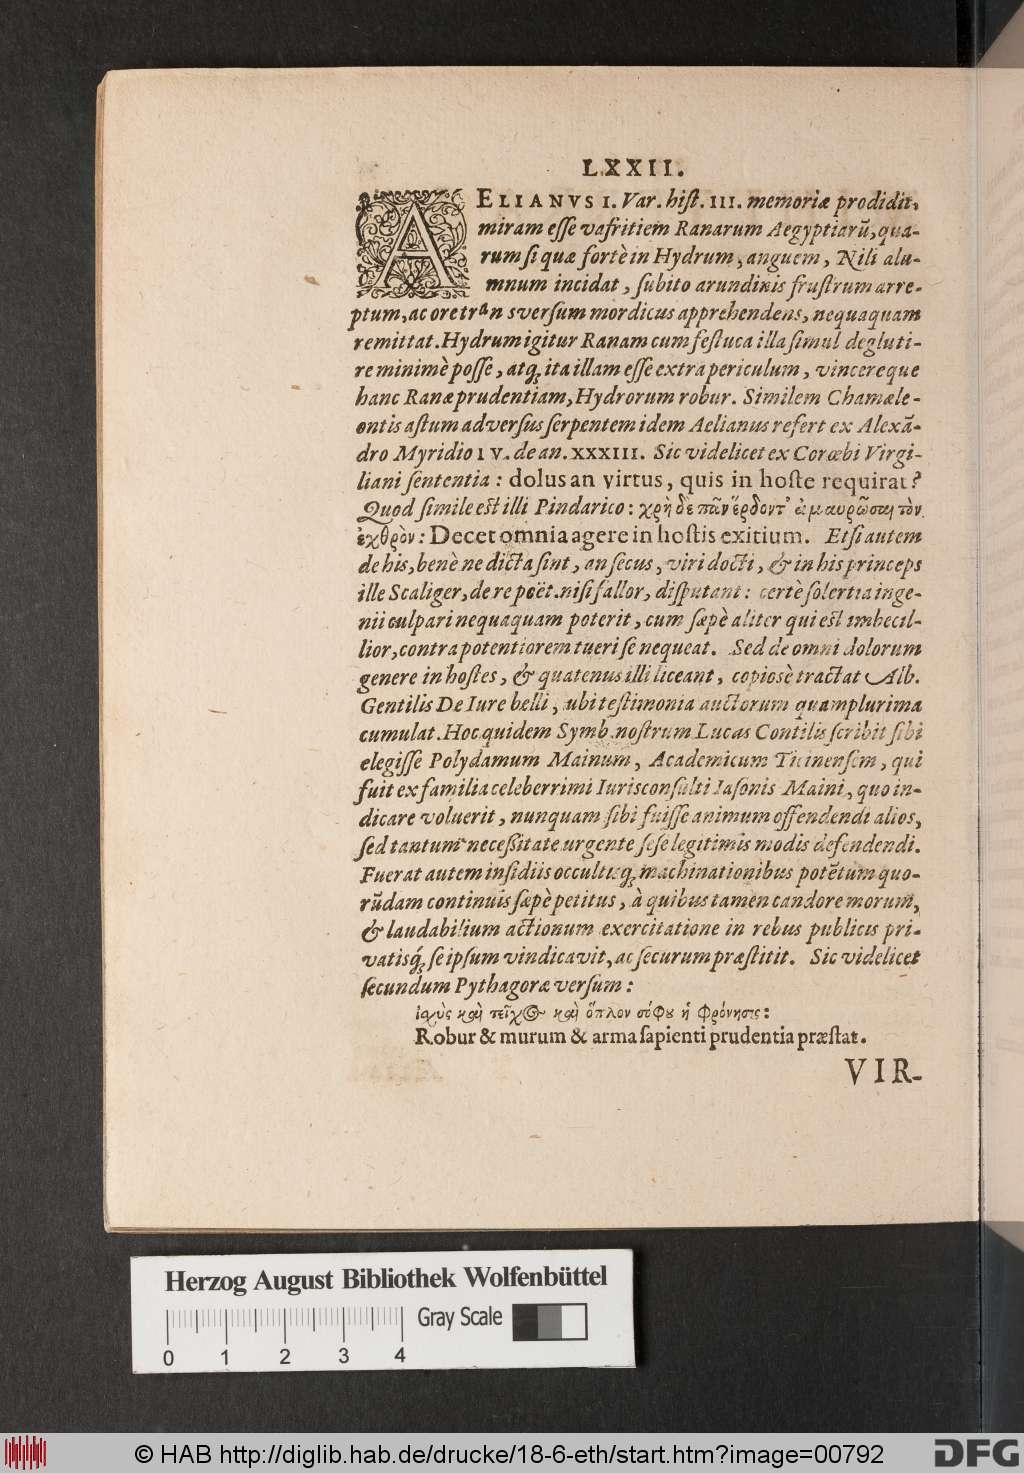 LXXII.
AELIANVS I. Var. hiſt. III. memoriæ prodidit,
miram eſſe vafritiem Ranarum Aegyptiarū, qua-
rum ſi quæ fortè in Hydrum, anguem, Nili alu-
mnum incidat, ſubito arundinis fruſtrum arre-
ptum, ac ore transverſum mordicus apprehendens, nequaquam
remittat. Hydrum igitur Ranam cum feſtuca illa ſimul degluti-
re minimè poſſe, atq; ita illam eſſe extra periculum, vincereque
hanc Ranæ prudentiam, Hydrorum robur. Similem Chamæle-
ontis aſtum adverſus ſerpentem idem Aelianus refert ex Alexā-
dro Myridio IV. de an. XXXIII. Sic videlicet ex Corœbi Virgi-
liani ſententia: dolus an virtus, quis in hoſte requirat?
Quod ſimile eſt illi Pindarico: χρὴ δὲ πᾶν ἕρδοντ᾽ ἀμαυρῶσαι τὸν
ἐχθρὸν: Decet omnia agere in hoſtis exitium. Etſi autem
de his, benè ne dicta ſint, an ſecus, viri docti, & in his princeps
ille Scaliger, de re poët. niſi fallor, diſputant: certè ſolertia inge-
nii culpari nequaquam poterit, cum ſæpè aliter qui eſt imbecil-
lior, contra potentiorem tueri ſe nequeat. Sed de omni dolorum
genere in hoſtes, & quatenus illi liceant, copiosè tractat Alb.
Gentilis De Iure belli, ubi teſtimonia auctorum quamplurima
cumulat. Hoc quidem Symb. noſtrum Lucas Contilis ſcribit ſibi
elegiſſe Polydamum Mainum, Academicum Ticinenſem, qui
fuit ex familia celeberrimi Iurisconſulti Iaſonis Maini, quo in-
dicare voluerit, nunquam ſibi fuiſſe animum offendendi alios,
ſed tantum neceßitate urgente ſeſe legitimis modis defendendi.
Fuerat autem inſidiis occultisq; machinationibus potētum quo-
rūdam continuis ſæpè petitus, à quibus tamen candore morum,
& laudabilium actionum exercitatione in rebus publicis pri-
vatisq́; ſe ipſum vindicavit, ac ſecurum præſtitit. Sic videlicet
ſecundum Pythagoræ verſum:
ἰσχὺς καὶ τεῖχος καὶ ὅπλον σόφου ἡ φρόνησις:
Robur & murum & arma ſapienti prudentia præſtat.
VIR-
Herzog August Bibliothek Wolfenbüttel
Gray Scale
0 1 2 3 4
© HAB http://diglib.hab.de/drucke/18-6-eth/start.htm?image=00792
DFG